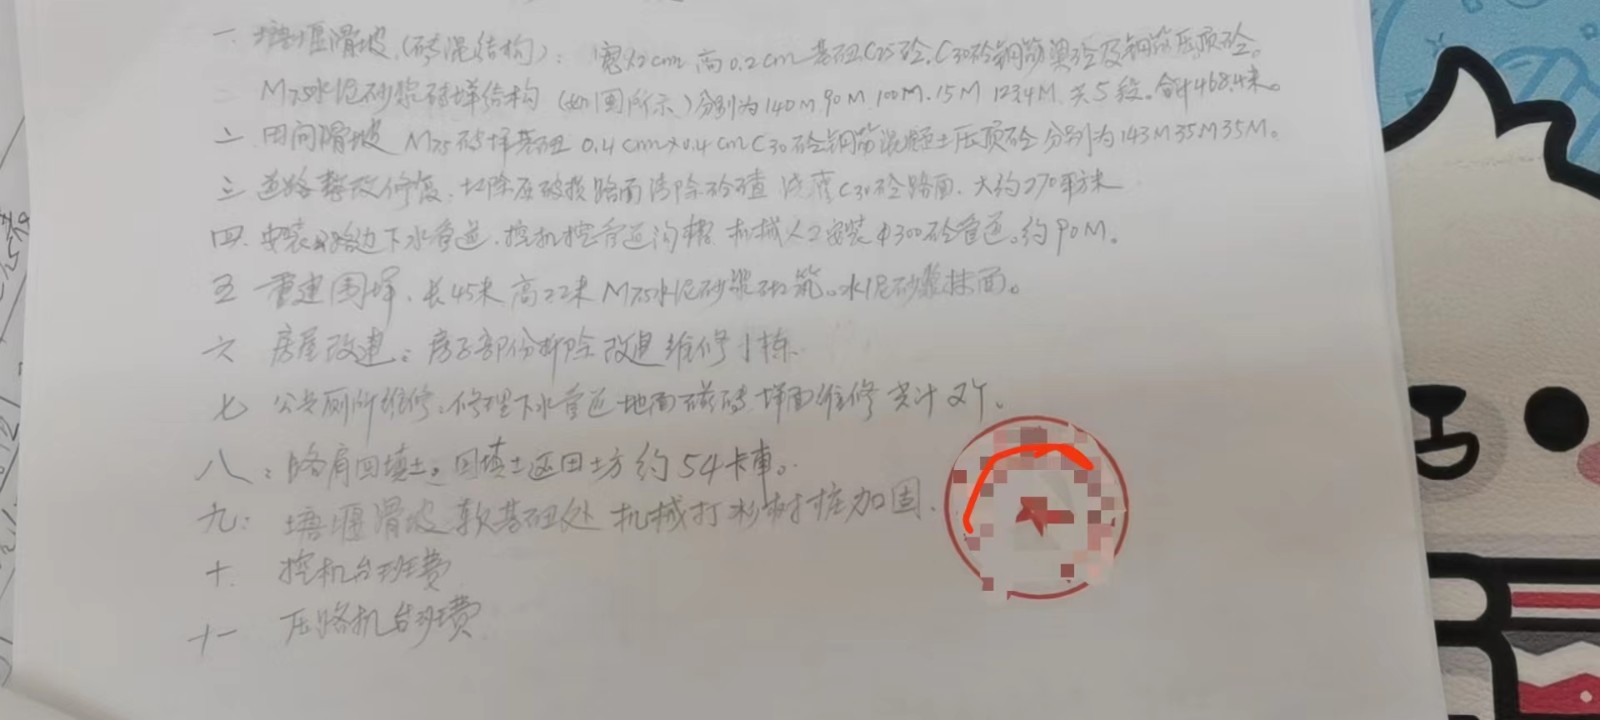 一. 塘堰滑坡.(砖混结构): 宽 cm 高0.2cm 基础C25砼. C30砼钢筋 砼及钢筋压顶砼。
M75水泥砂浆砖墙结构 (如图所示) 分别为140M 90M 100M. 15M 123.4M. 共5段。合计468.4米。
二 田间滑坡 M75砖墙基础 0.4cm×0.4cm C30砼钢筋混凝土压顶砼 分别为143M 35M 35M。
三 道路整改修复. 拆除原破损路面清除砼渣 浇灌C30砼路面. 大约270平方米
四. 安装路边下水管道. 挖机挖管道沟槽 机械人工安装φ300砼管道。约90M。
五 重建围墙. 长45米 高2.2米 M75水泥砂浆砌筑。水泥砂浆抹面。
六 房屋改建: 房子部份拆除改建维修1栋.
七 公共厕所维修. 修理下水管道地面磁砖 墙面维修 共计2个。
八: 路肩回填土. 回填土运田土方 约54卡车。
九: 塘堰滑坡 软基础处 机械打杉树桩加固.
十. 挖机台班费
十一 压路机台班费